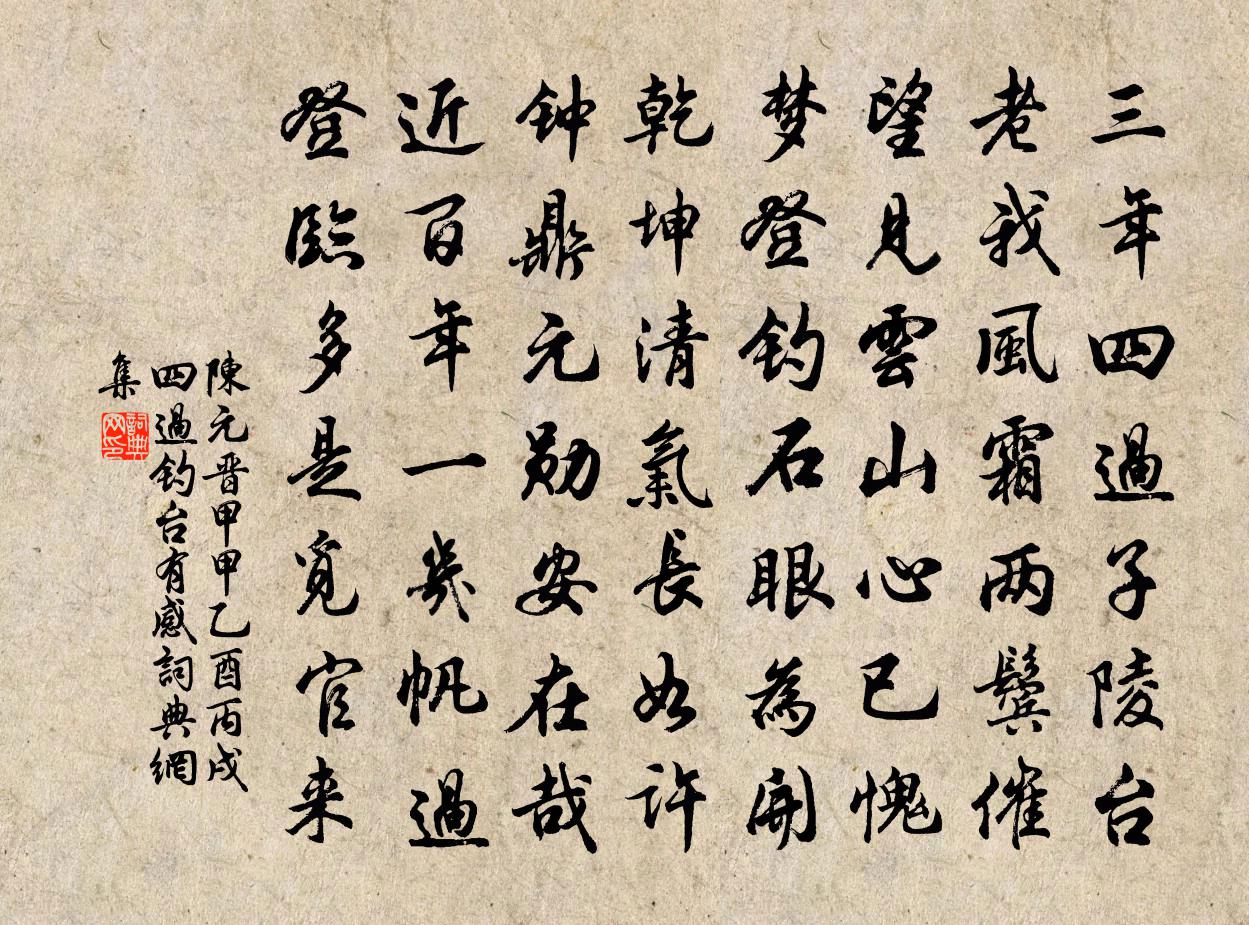 三年四過子陵台
老我風霜两鬓催
望見雲山心已愧
梦登钓石眼為開
乾坤清氣長如许
钟鼎元勋安在哉
近百年一幾帆過
登臨多是觅官来
陳元晋甲甲乙酉丙戌
四過钓台有感詞典網
集
詞典
网印